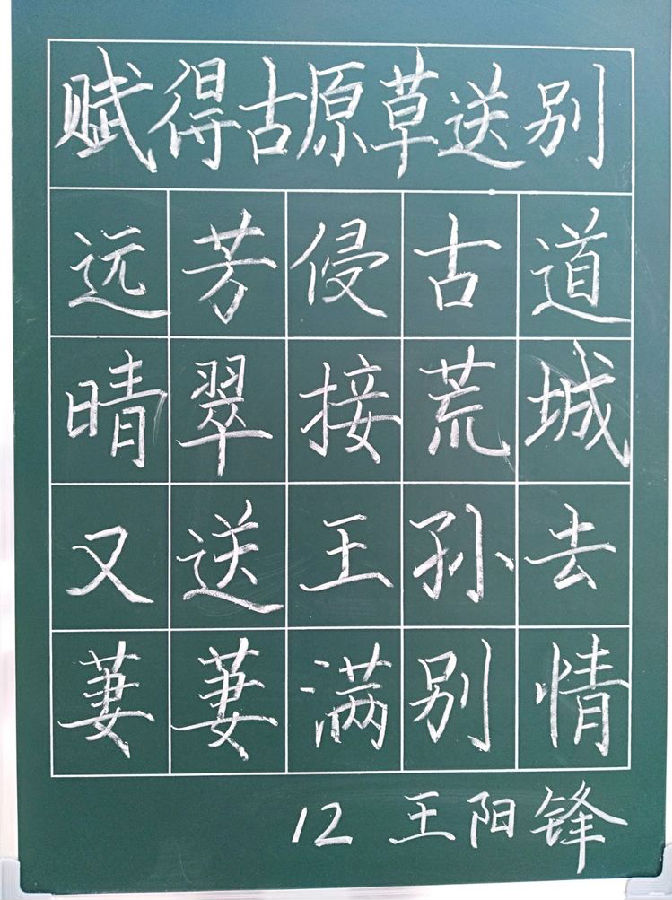 赋得古原草送别
远芳侵古道
晴翠接荒城
又送王孙去
萋萋满别情
12 王阳锋